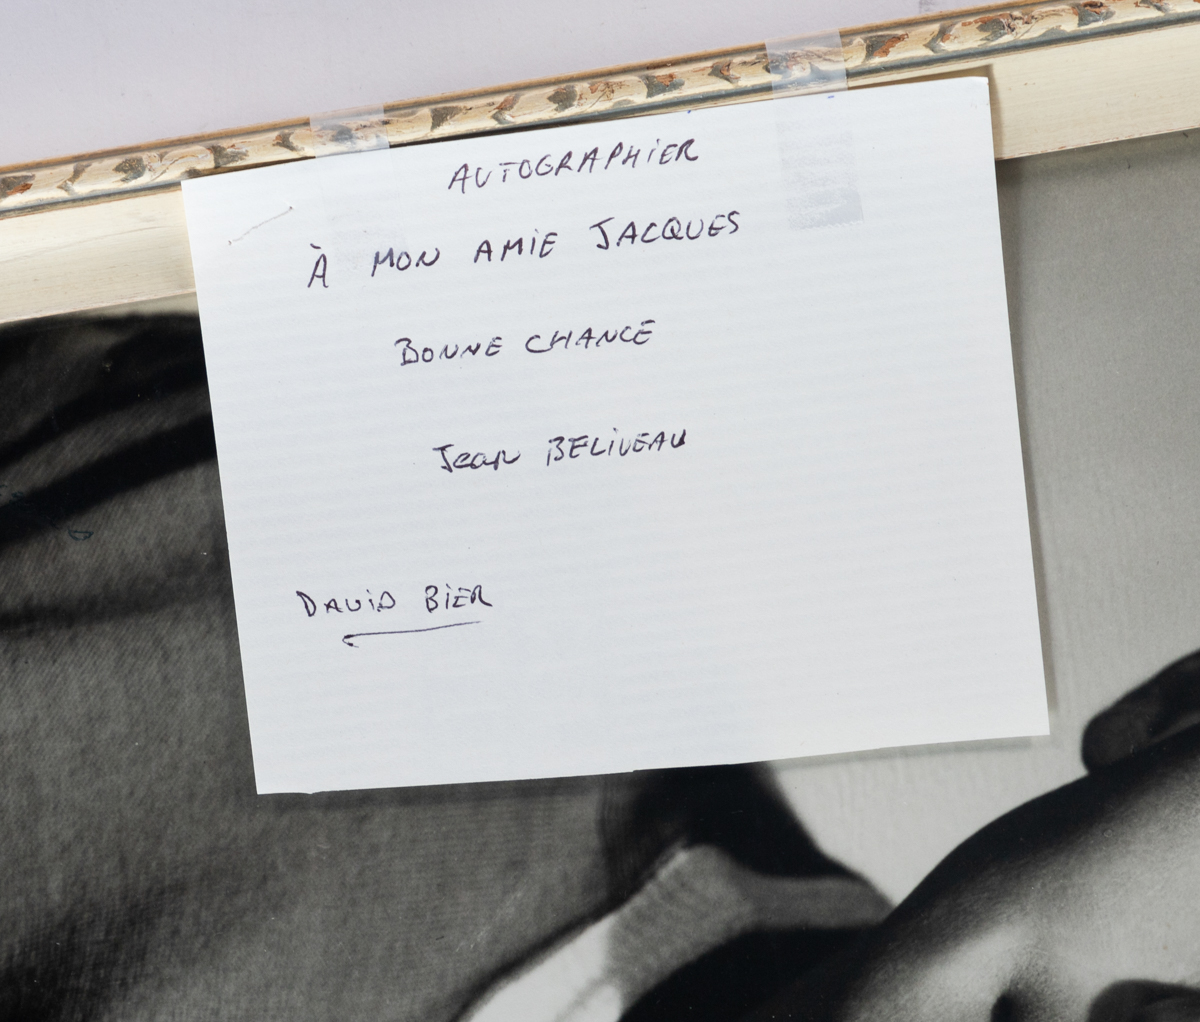 AUTOGRAPHiER
À MON AMiE JACQUES
BONNE CHANCE
Jean BELiVEAU
DAViD BiER